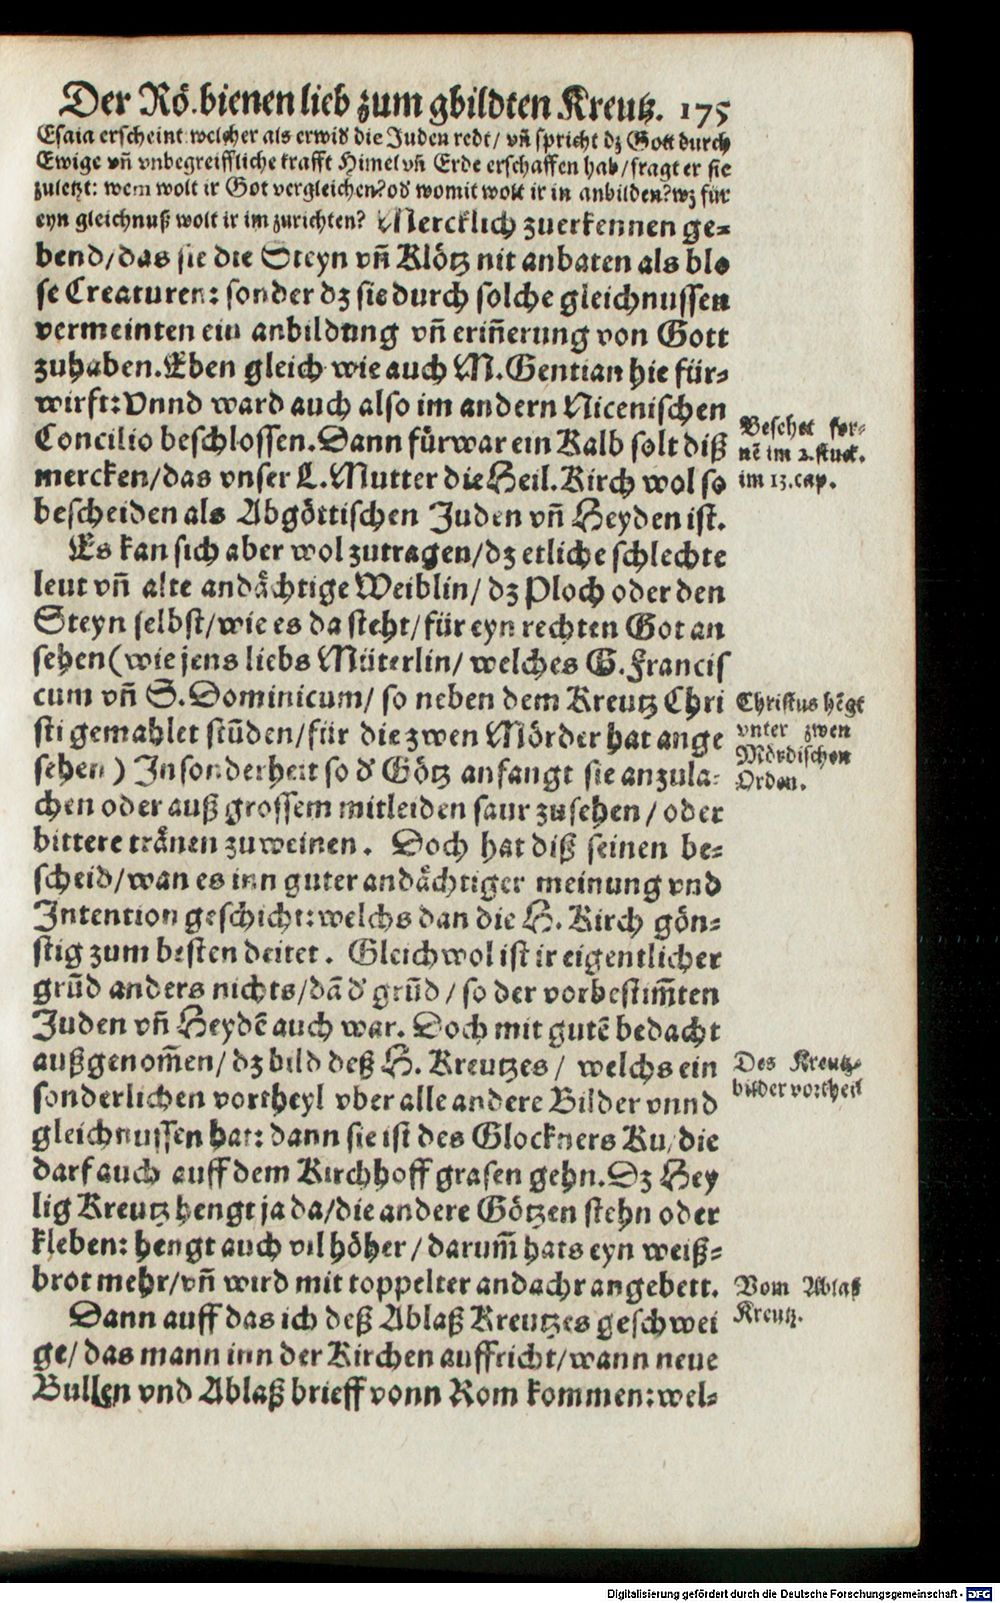 Der Rö. bienen lieb zum gbildten Kreutz. 175
Esaia erscheint: welcher als er wid die Juden redt/ vñ spricht dz Gott durch
Ewige vñ vnbegreiffliche krafft Himel vñ Erde erschaffen hab/ fragt er sie
zuletzt: wem wolt ir Got vergleichen? od womit wolt ir in anbilden? wz für
eyn gleichnuß wolt ir im zurichten? Mercklich zuerkennen ge=
bend/ das sie die Steyn vñ Klötz nit anbaten als blo
se Creaturen: sonder dz sie durch solche gleichnussen
vermeinten ein anbildung vñ eriñerung von Gott
zuhaben. Eben gleich wie auch M. Gentian hie für=
wirft: Vnnd ward auch also im andern Nicenischen
Concilio beschlossen. Dann fürwar ein Kalb solt diß
mercken/ das vnser L. Mutter die Heil. Kirch wol so
bescheiden als Abgöttischen Juden vñ Heyden ist.
Besehet for=
nē im 2. stuck.
im 13. cap.
Es kan sich aber wol zutragen/ dz etliche schlechte
leut vñ alte andächtige Weiblin/ dz Ploch oder den
Steyn selbst/ wie es da steht/ für eyn rechten Got an
sehen (wie jens liebs Müterlin/ welches S. Francis
cum vñ S. Dominicum/ so neben dem Kreutz Chri
sti gemahlet stūden/ für die zwen Mörder hat ange
sehen) In sonderheit so d Götz anfangt sie anzula=
chen oder auß grossem mitleiden saur zusehen/ oder
bittere tränen zuweinen. Doch hat diß seinen be=
scheid/ wan es inn guter andächtiger meinung vnd
Intention geschicht: welchs dan die H. Kirch gön=
stig zum besten deitet. Gleichwol ist ir eigentlicher
grūd anders nichts/ dā d grūd/ so der vorbestim̃ten
Juden vñ Heydē auch war. Doch mit gutē bedacht
außgenom̃en/ dz bild deß H. Kreutzes/ welchs ein
sonderlichen vortheyl vber alle andere Bilder vnnd
gleichnussen hat: dann sie ist des Glockners Ku/ die
darf auch auff dem Kirchhoff grasen gehn. Dz Hey
lig Kreutz hengt ja da/ die andere Götzen stehn oder
kleben: hengt auch vil höher/ darum̃ hats eyn weiß=
brot mehr/ vñ wird mit toppelter andacht angebett.
Christus hēgt
vnter zwen
Mördischen
Orden.
Des Kreutz=
bilder vortheil
Dann auff das ich deß Ablaß Kreutzes geschwei
ge/ das mann inn der Kirchen auffricht/ wann neue
Bullen vnd Ablaß brieff vonn Rom kommen: wel=
Vom Ablaß
Kreutz.
Digitalisierung gefördert durch die Deutsche Forschungsgemeinschaft - DFG